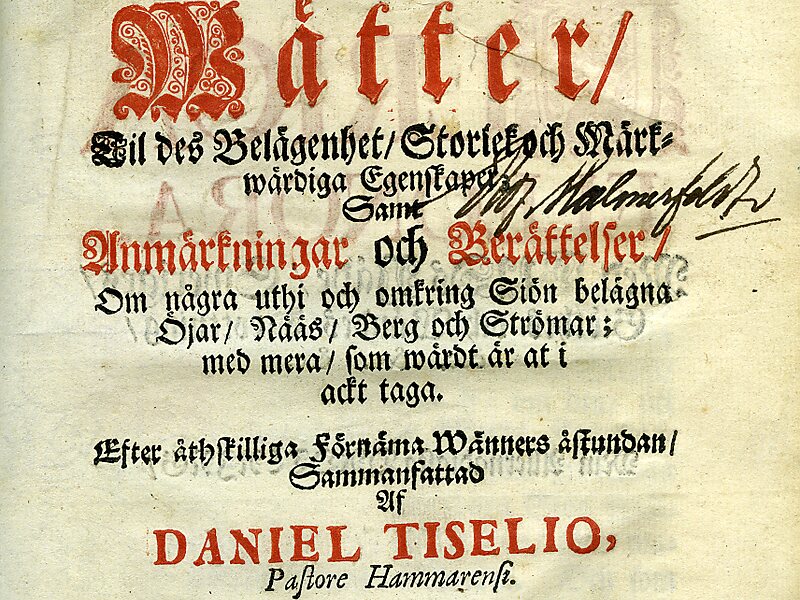 Wätter/
Til des Belägenhet/ Storlek och Märk=
wärdiga Egenskaper;
Malmerfeldt
Samt
Anmärkningar och Berättelser/
Om några uthi och omkring Siön belägna
Öjar/ Nääs/ Berg och Strömar;
med mera/ som wärdt är at i
ackt taga.
Efter åthskilliga Förnäma Wänners åstundan/
Sammanfattad
Af
DANIEL TISELIO,
Pastore Hammarensi.